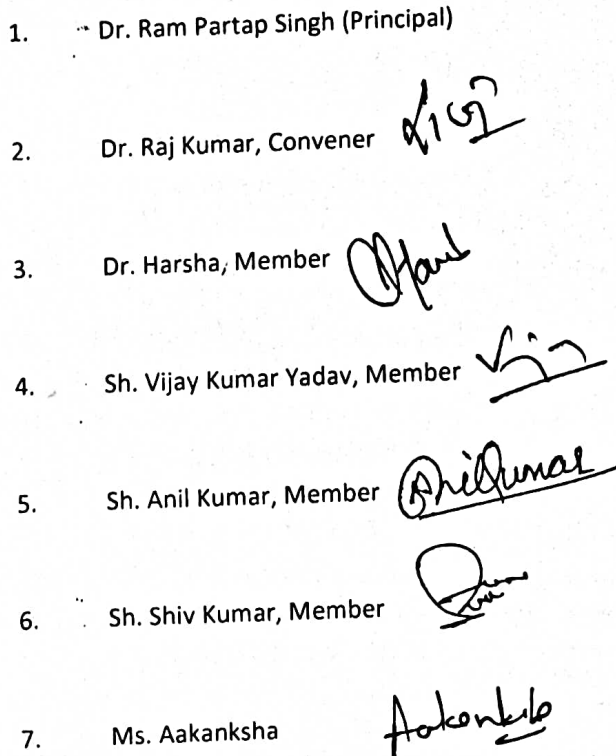 1. Dr. Ram Partap Singh (Principal)
2. Dr. Raj Kumar, Convener
3. Dr. Harsha, Member
4. Sh. Vijay Kumar Yadav, Member
5. Sh. Anil Kumar, Member Anil Kumar
6. Sh. Shiv Kumar, Member
7. Ms. Aakanksha